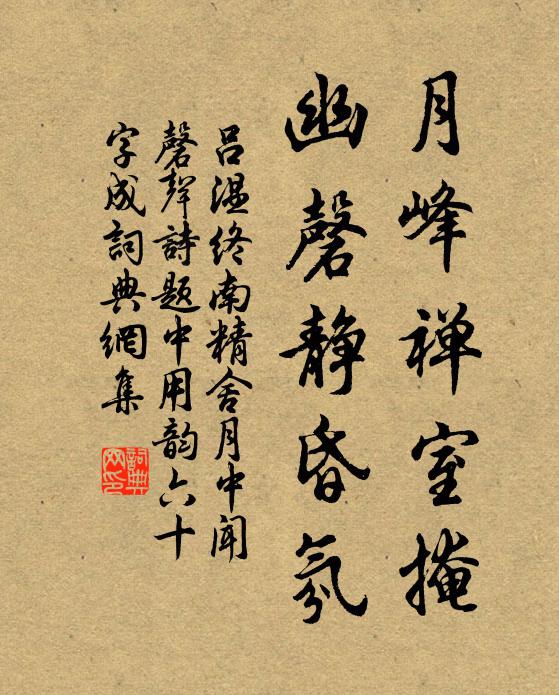 月峰禅室掩
幽磬静昏氛
吕温终南精舍月中闻
磬聲詩题中用韵六十
字成詞典網集
詞典网印